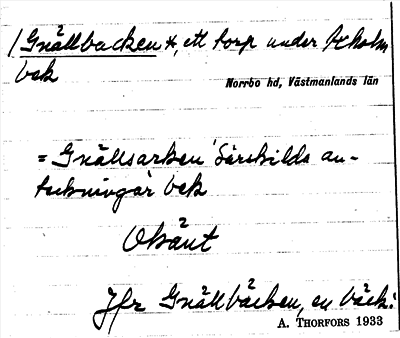 /Gnällbacken *, ett torp under Stholm
bek
Norrbo hd, Västmanlands län
= Gnällsarken 'Särskilda an-
teckningar bek
Okänt
Jfr Gnällbäcken, en bäck.
A. THORFORS 1933